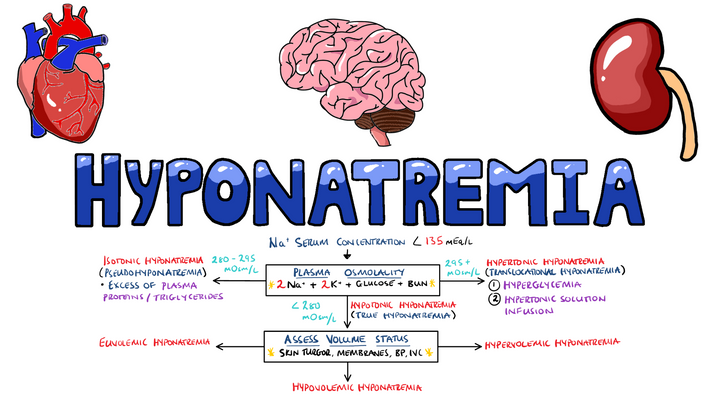 HYPONATREMIA
Na⁺ SERUM CONCENTRATION < 135 mEq/L
ISOTONIC HYPONATREMIA
(PSEUDOHYPONATREMIA)
• EXCESS OF PLASMA
PROTEINS / TRIGLYCERIDES
280-295
mOsm/L
PLASMA OSMOLALITY
2 Na⁺ + 2 K⁺ + GLUCOSE + BUN
295+
mOsm/L
HYPERTONIC HYPONATREMIA
(TRANSLOCATIONAL HYPONATREMIA)
1 HYPERGLYCEMIA
2 HYPERTONIC SOLUTION
INFUSION
< 280
mOsm/L
HYPOTONIC HYPONATREMIA
(TRUE HYPONATREMIA)
EUVOLEMIC HYPONATREMIA
ASSESS VOLUME STATUS
SKIN TURGOR, MEMBRANES, BP, IVC
HYPERVOLEMIC HYPONATREMIA
HYPOVOLEMIC HYPONATREMIA